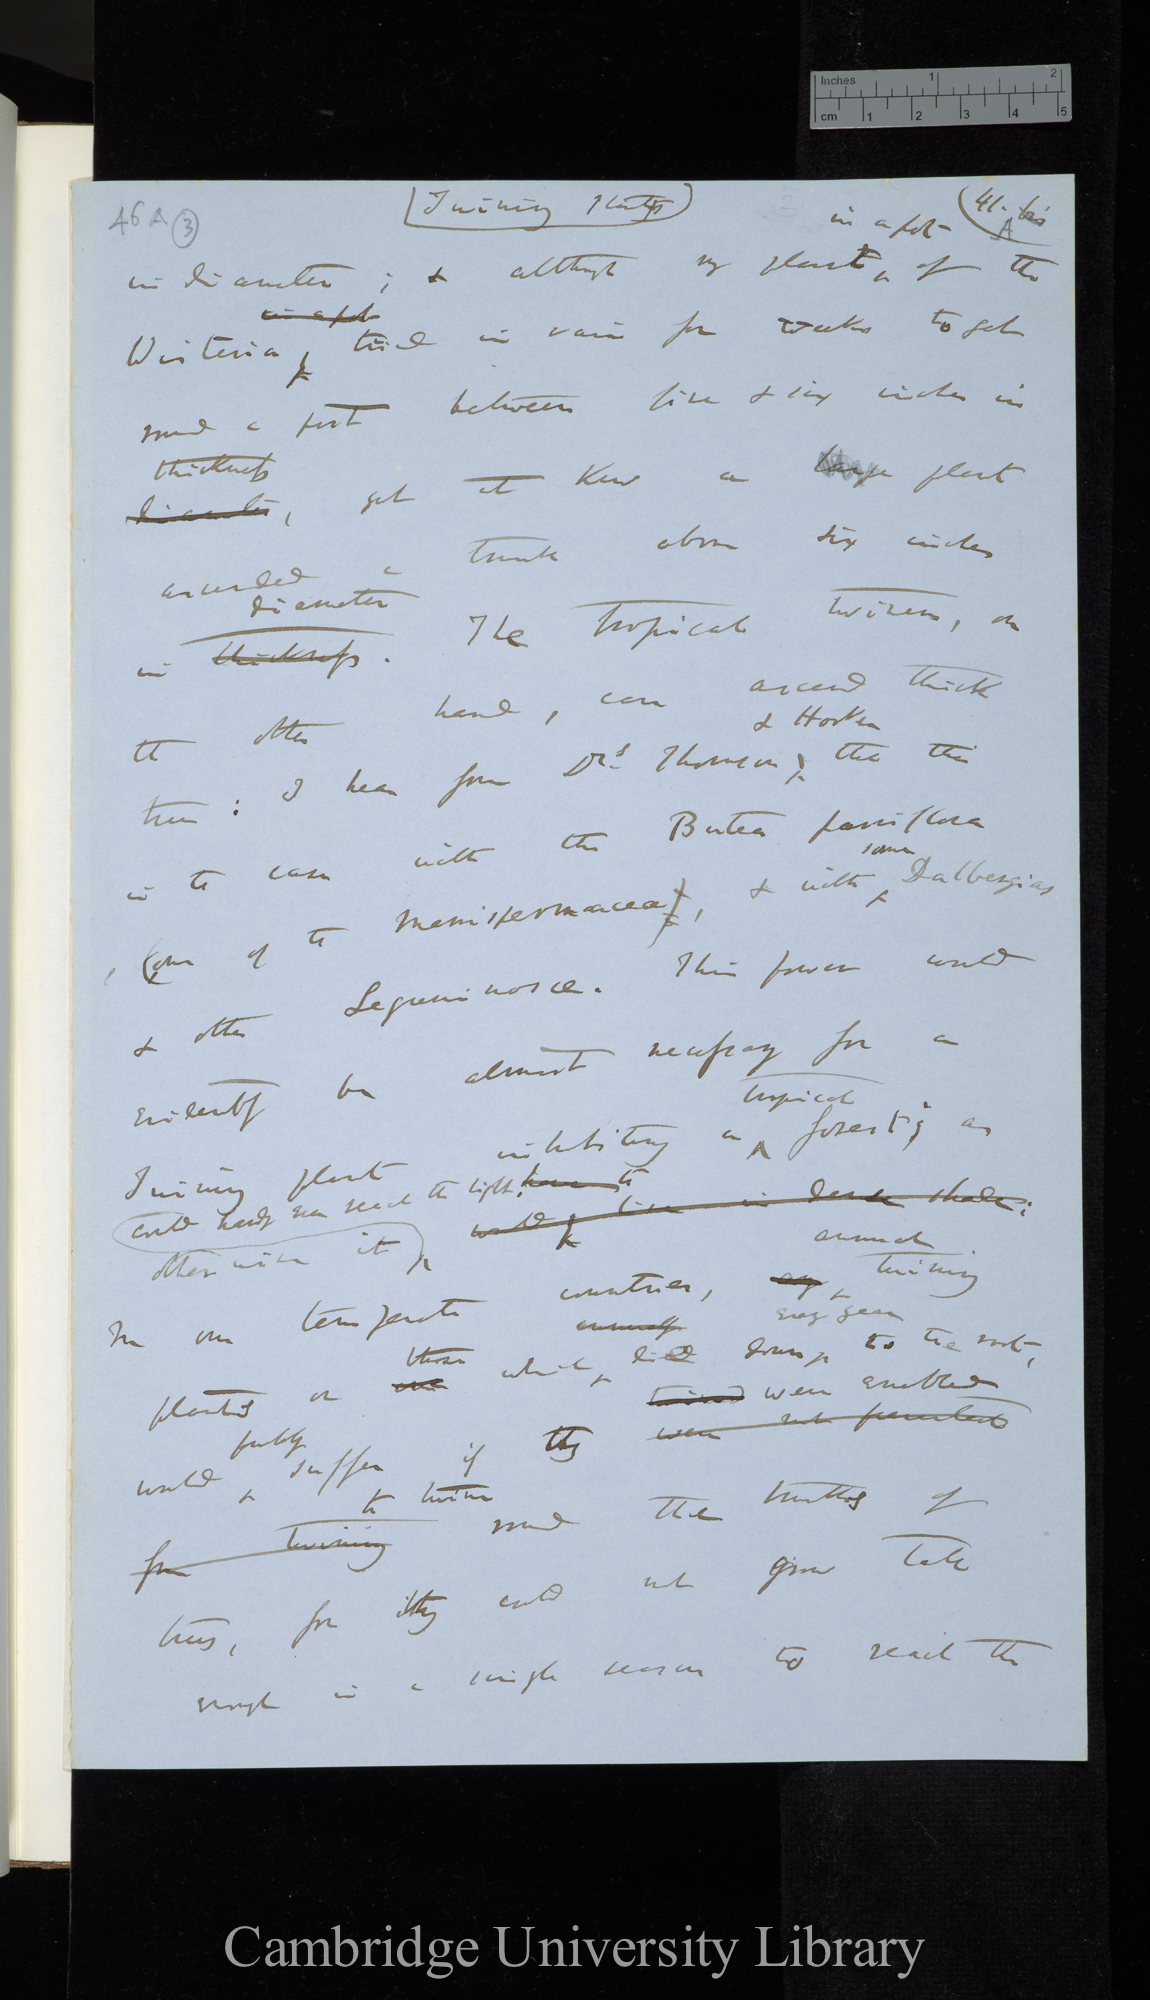 46A (3)
(Twining Plants)
(41. bis
A
in a pot
in diameter; & although my plant, of the
in a pot
Wisteria, tried in vain for weeks to get
round a post between five & six inches in
thickness
diameter, yet at Kew a large plant
ascended a trunk above six inches
diameter
in thickness. The tropical twiners, on
the other hand, can ascend thick
& Hooker
trees: I hear from Drs Thomson that this
is the case with the Butea parviflora
some
(one of the Menispermaceae), & with Dalbergias
& other Leguminosae. This power would
evidently be almost necessary for a
tropical
Twining plant inhabiting a forest; as
could hardly ever reach the light. have to
otherwise it would live in dark shade:
annual
In our temperate countries, any twining
annually every year
plants or those one which died down to the root,
twined were enabled
probably
would suffer if they were not prevented
to twine
from twining round the trunks of
trees, for they could not grow tall
enough in a single season to reach the
Inches 1 2
cm 1 2 3 4 5
Cambridge University Library